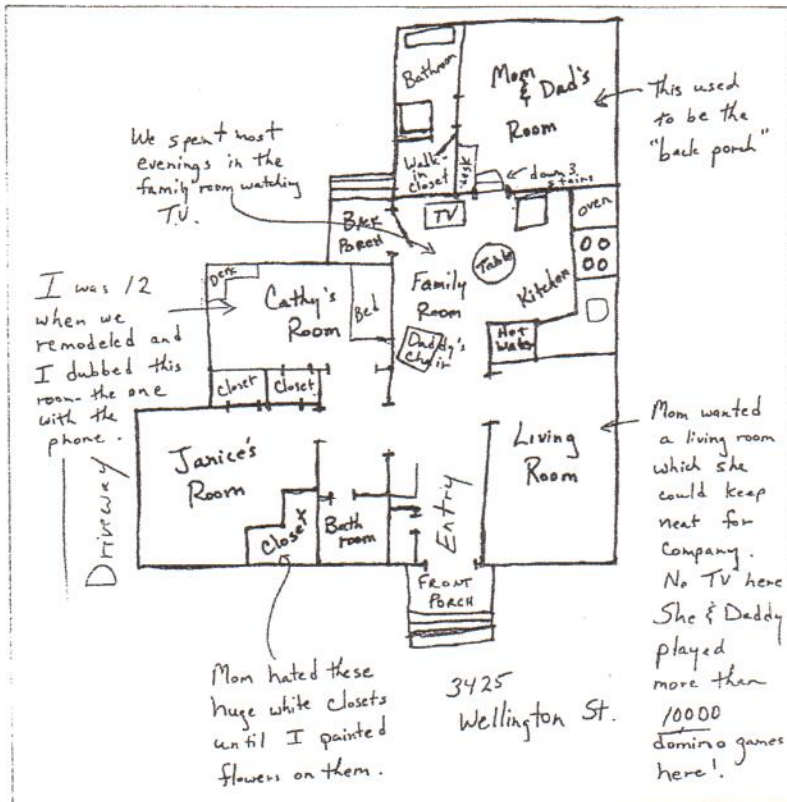 Bathroom
Mom
& Dad's
Room
This used
to be the
"back porch"
We spent most
evenings in the
family room watching
T.V.
Walk-
in
closet
Desk
down 3
stairs
Back
Porch
TV
oven
Table
Kitchen
Family
Room
Desk
Cathy's
Room
Bed
Daddy's
Chair
Hot
Water
I was 12
when we
remodeled and
I dubbed this
room - the one
with the
phone.
Closet
Closet
Janice's
Room
Closet
Bath
room
Entry
Living
Room
Driveway
Front
Porch
Mom wanted
a living room
which she
could keep
neat for
company.
No TV here
She & Daddy
played
more than
10000
domino games
here!
Mom hated these
huge white closets
until I painted
flowers on them.
3425
Wellington St.